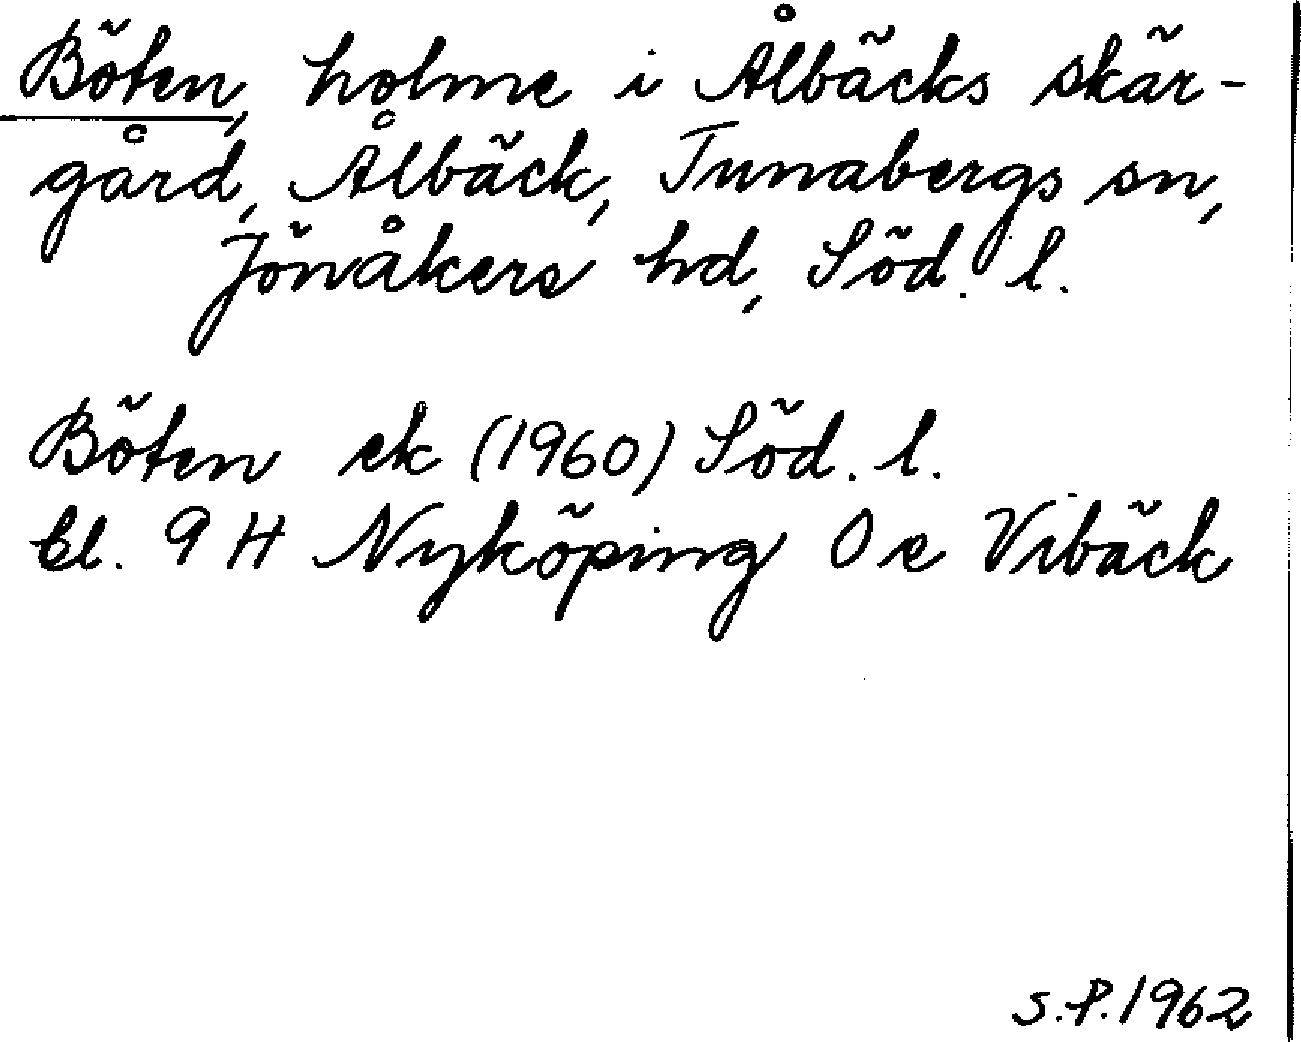 Böten, holme i Ålbäcks skär-
gård, Ålbäck, Tunabergs sn,
Jönåkers hd, Söd. l.
Böten ek (1960) Söd. l.
bl. 9 H Nyköping 0 e Vibäck
S.P. 1962